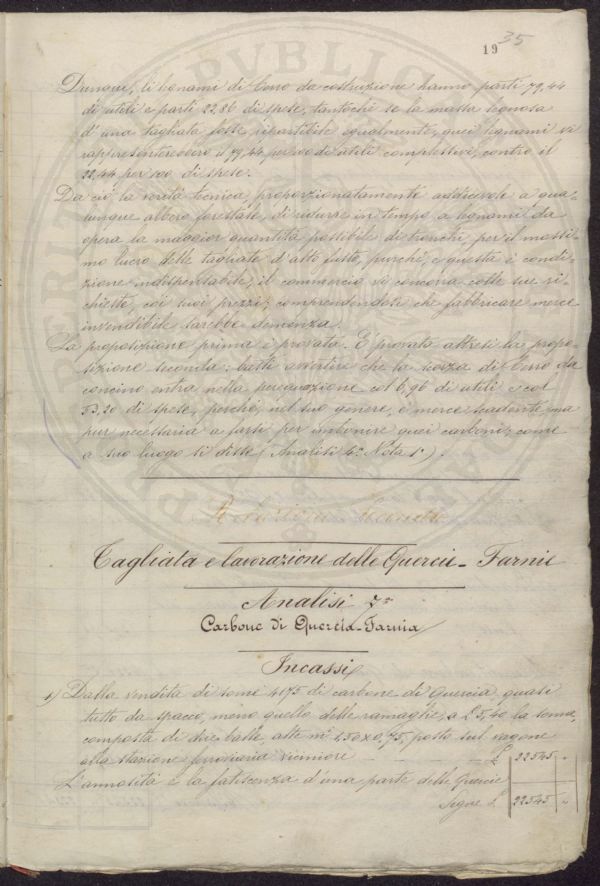 19 35
Dunque, li legnami di Cerro da costruzione hanno parti 79,44
di utili e parti 22,86 di spese, tantochè se la massa legnosa
d'una tagliata fosse ripartibile egualmente, quei legnami vi
rappresenterebbero il 79,44 per 100 di utili complessivi, contro il
22,44 per 100 di spese.
Da ciò la verità tecnica, proporzionatamente addicevole a qua-
lunque albero forestale, di ridurre in tempo, a legnami da
opera la maggior quantità possibile di tronchi, per il massi-
mo lucro delle tagliate d'alto fusto, purchè, e questa è condi-
zione indispensabile, il commercio vi concorra colle sue ri-
chieste, coi suoi prezzi; comprendendosi che fabbricare merce
invendibile sarebbe demenza.
La proposizione prima è provata. È provata altresì la propo-
sizione seconda: basti avvertire che la scorza di Cerro da
concino entra nella perequazione col 6,96 di utili e col
53,20 di spese, perchè, nel suo genere, è merce scadente, ma
pur necessaria a farsi per imbonire quei carboni, come
a suo luogo si disse (Analisi 4ª Nota 1ª).
Tagliata e lavorazione delle Quercie-Farnie
Analisi 7ª
Carbone di Quercia-Farnia
Incassi
1) Dalla vendita di some 4175 di carbone di Quercia, quasi
tutto da spacco, meno quello delle ramaglie, a £ 5,40 la soma,
composta di due balle, alte m¹ 1,50 x 0,75, posto sul vagone
alla stazione ferroviaria viciniore £ 22545 "
L'annosità e la fatiscenza d'una parte delle Quercie
Segue £ 22545 "